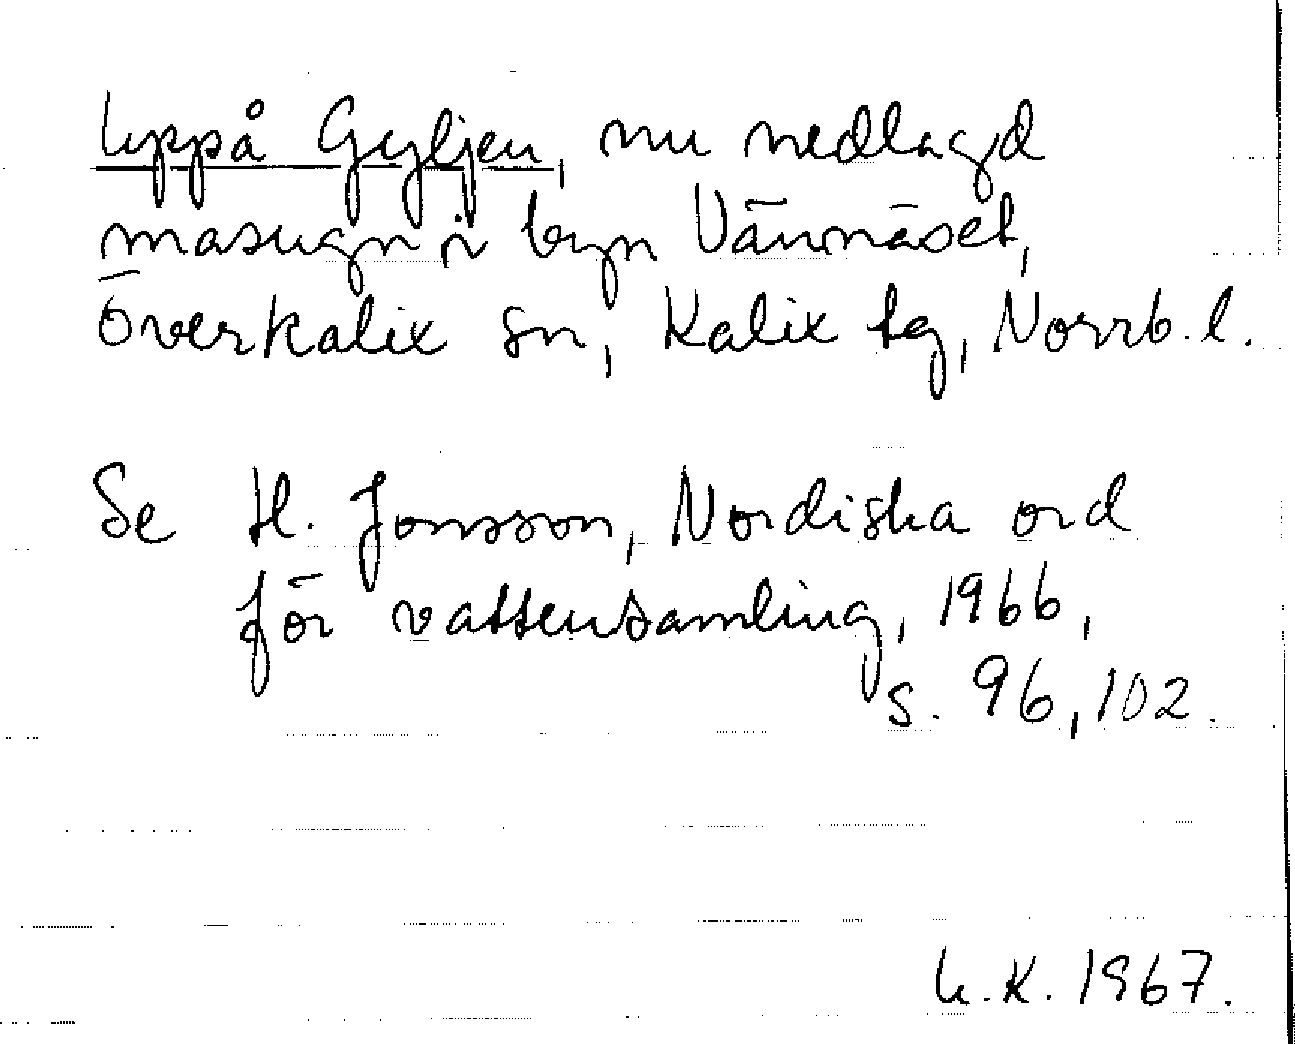 Uppå Gyljen, nu nedlagd
masugn i byn Vännäset,
Överkalix sn, Kalix tg, Norrb. l.
Se H. Jonsson, Nordiska ord
för vattensamling, 1966,
s. 96, 102.
G. K. 1967.